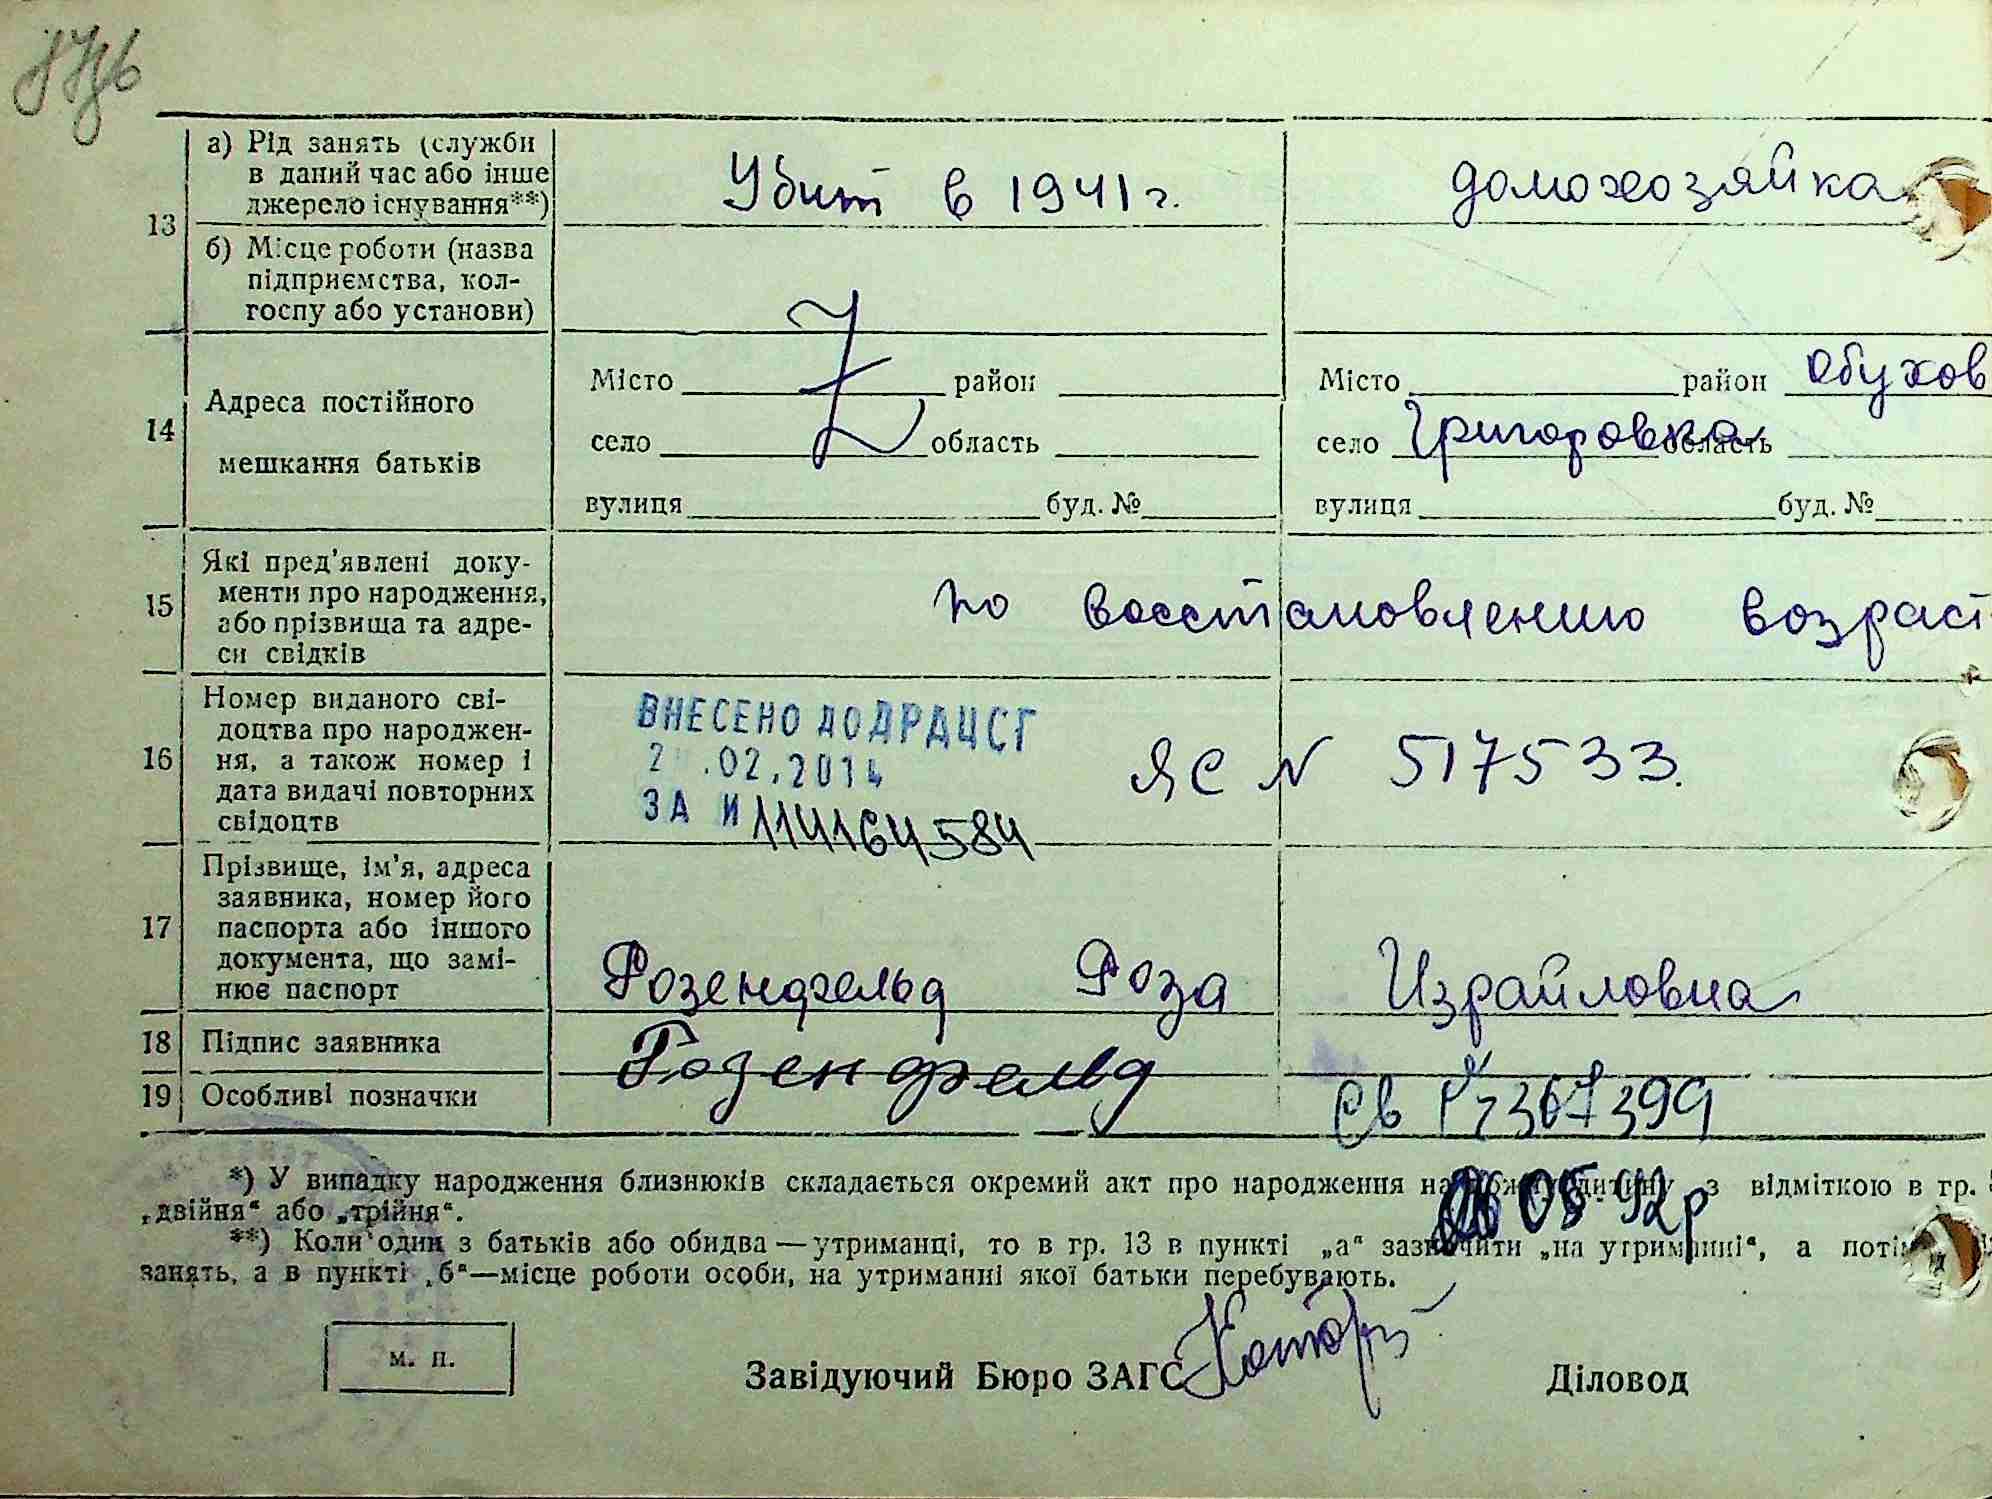 13
а) Рід занять (служби
в даний час або інше
джерело існування**)
Убит в 1941 г.
домохозяйка
б) Місце роботи (назва
підприємства, кол-
госпу або установи)
14
Адреса постійного
мешкання батьків
Місто район
село область
вулиця буд. №
Місто район Обухов
село Григоровка область
вулиця буд. №
15
Які пред'явлені доку-
менти про народження,
або прізвища та адре-
си свідків
по восстановлению возраст
16
Номер виданого сві-
доцтва про народжен-
ня, а також номер і
дата видачі повторних
свідоцтв
ВНЕСЕНО ДО ДРАЦСГ
2 .02.2014
ЗА И 114164584
ЯС N 517533.
17
Прізвище, ім'я, адреса
заявника, номер його
паспорта або іншого
документа, що замі-
нює паспорт
Розенфельд Роза Израйловна
18
Підпис заявника
Розенфельд
19
Особливі позначки
Св 367399
05.92р
*) У випадку народження близнюків складається окремий акт про народження на кожну дитину з відміткою в гр.
„двійня“ або „трійня“.
**) Коли один з батьків або обидва — утриманці, то в гр. 13 в пункті „а“ зазначити „на утриманні“, а потім
занять, а в пункті „б“—місце роботи особи, на утриманні якої батьки перебувають.
м. п.
Завідуючий Бюро ЗАГС
Діловод